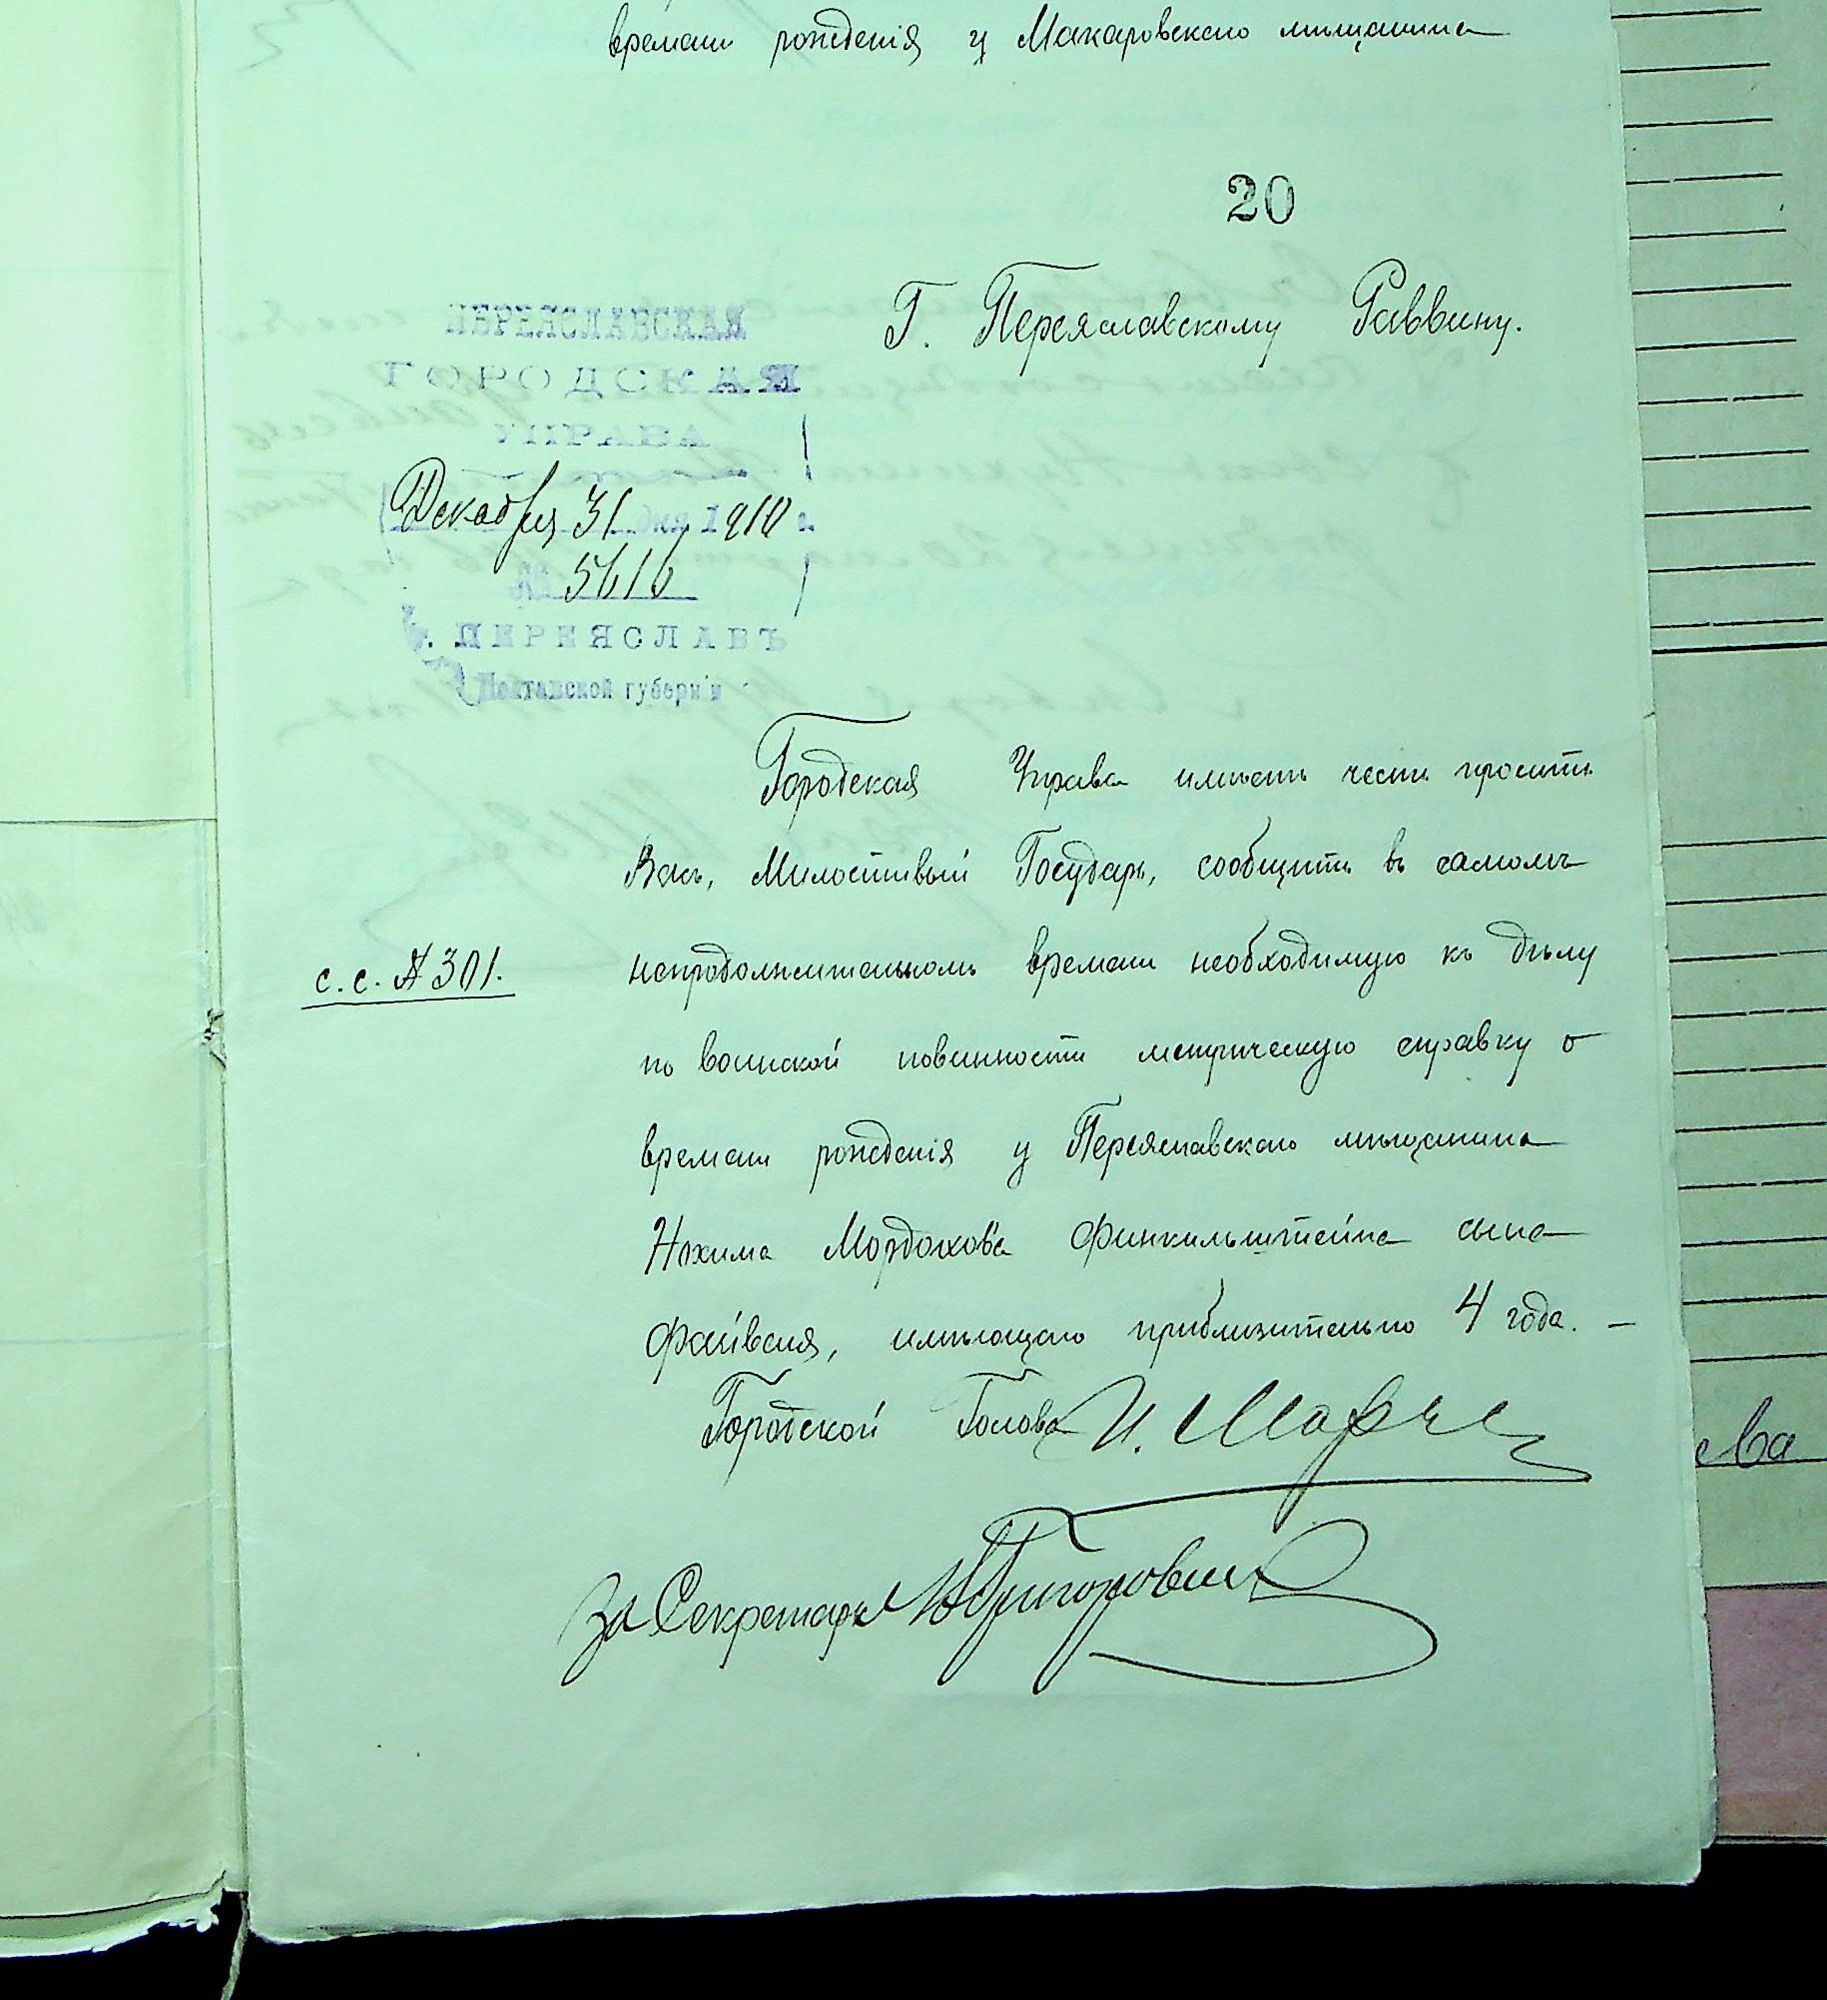 времени рожденія у Макаровскаго мѣщанина
20
Г. Переяславскому Раввину.
ПЕРЕЯСЛАВСКАЯ
ГОРОДСКАЯ
УПРАВА
Декабря 31 дня 1910 г.
№ 5616
г. ПЕРЕЯСЛАВЪ
Полтавской губерніи
Городская Управа имѣетъ честь просить
Васъ, Милостивый Государь, сообщить въ самомъ
с.с. № 301.
непродолжительномъ времени необходимую къ дѣлу
по воинской повинности метрическую справку о
времени рожденія у Переяславскаго мѣщанина
Нохима Мордохова Финкильштейна сына
Файвеля, имѣющаго приблизительно 4 года. —
Городской Голова И.
За Секретаря Григорович
ева